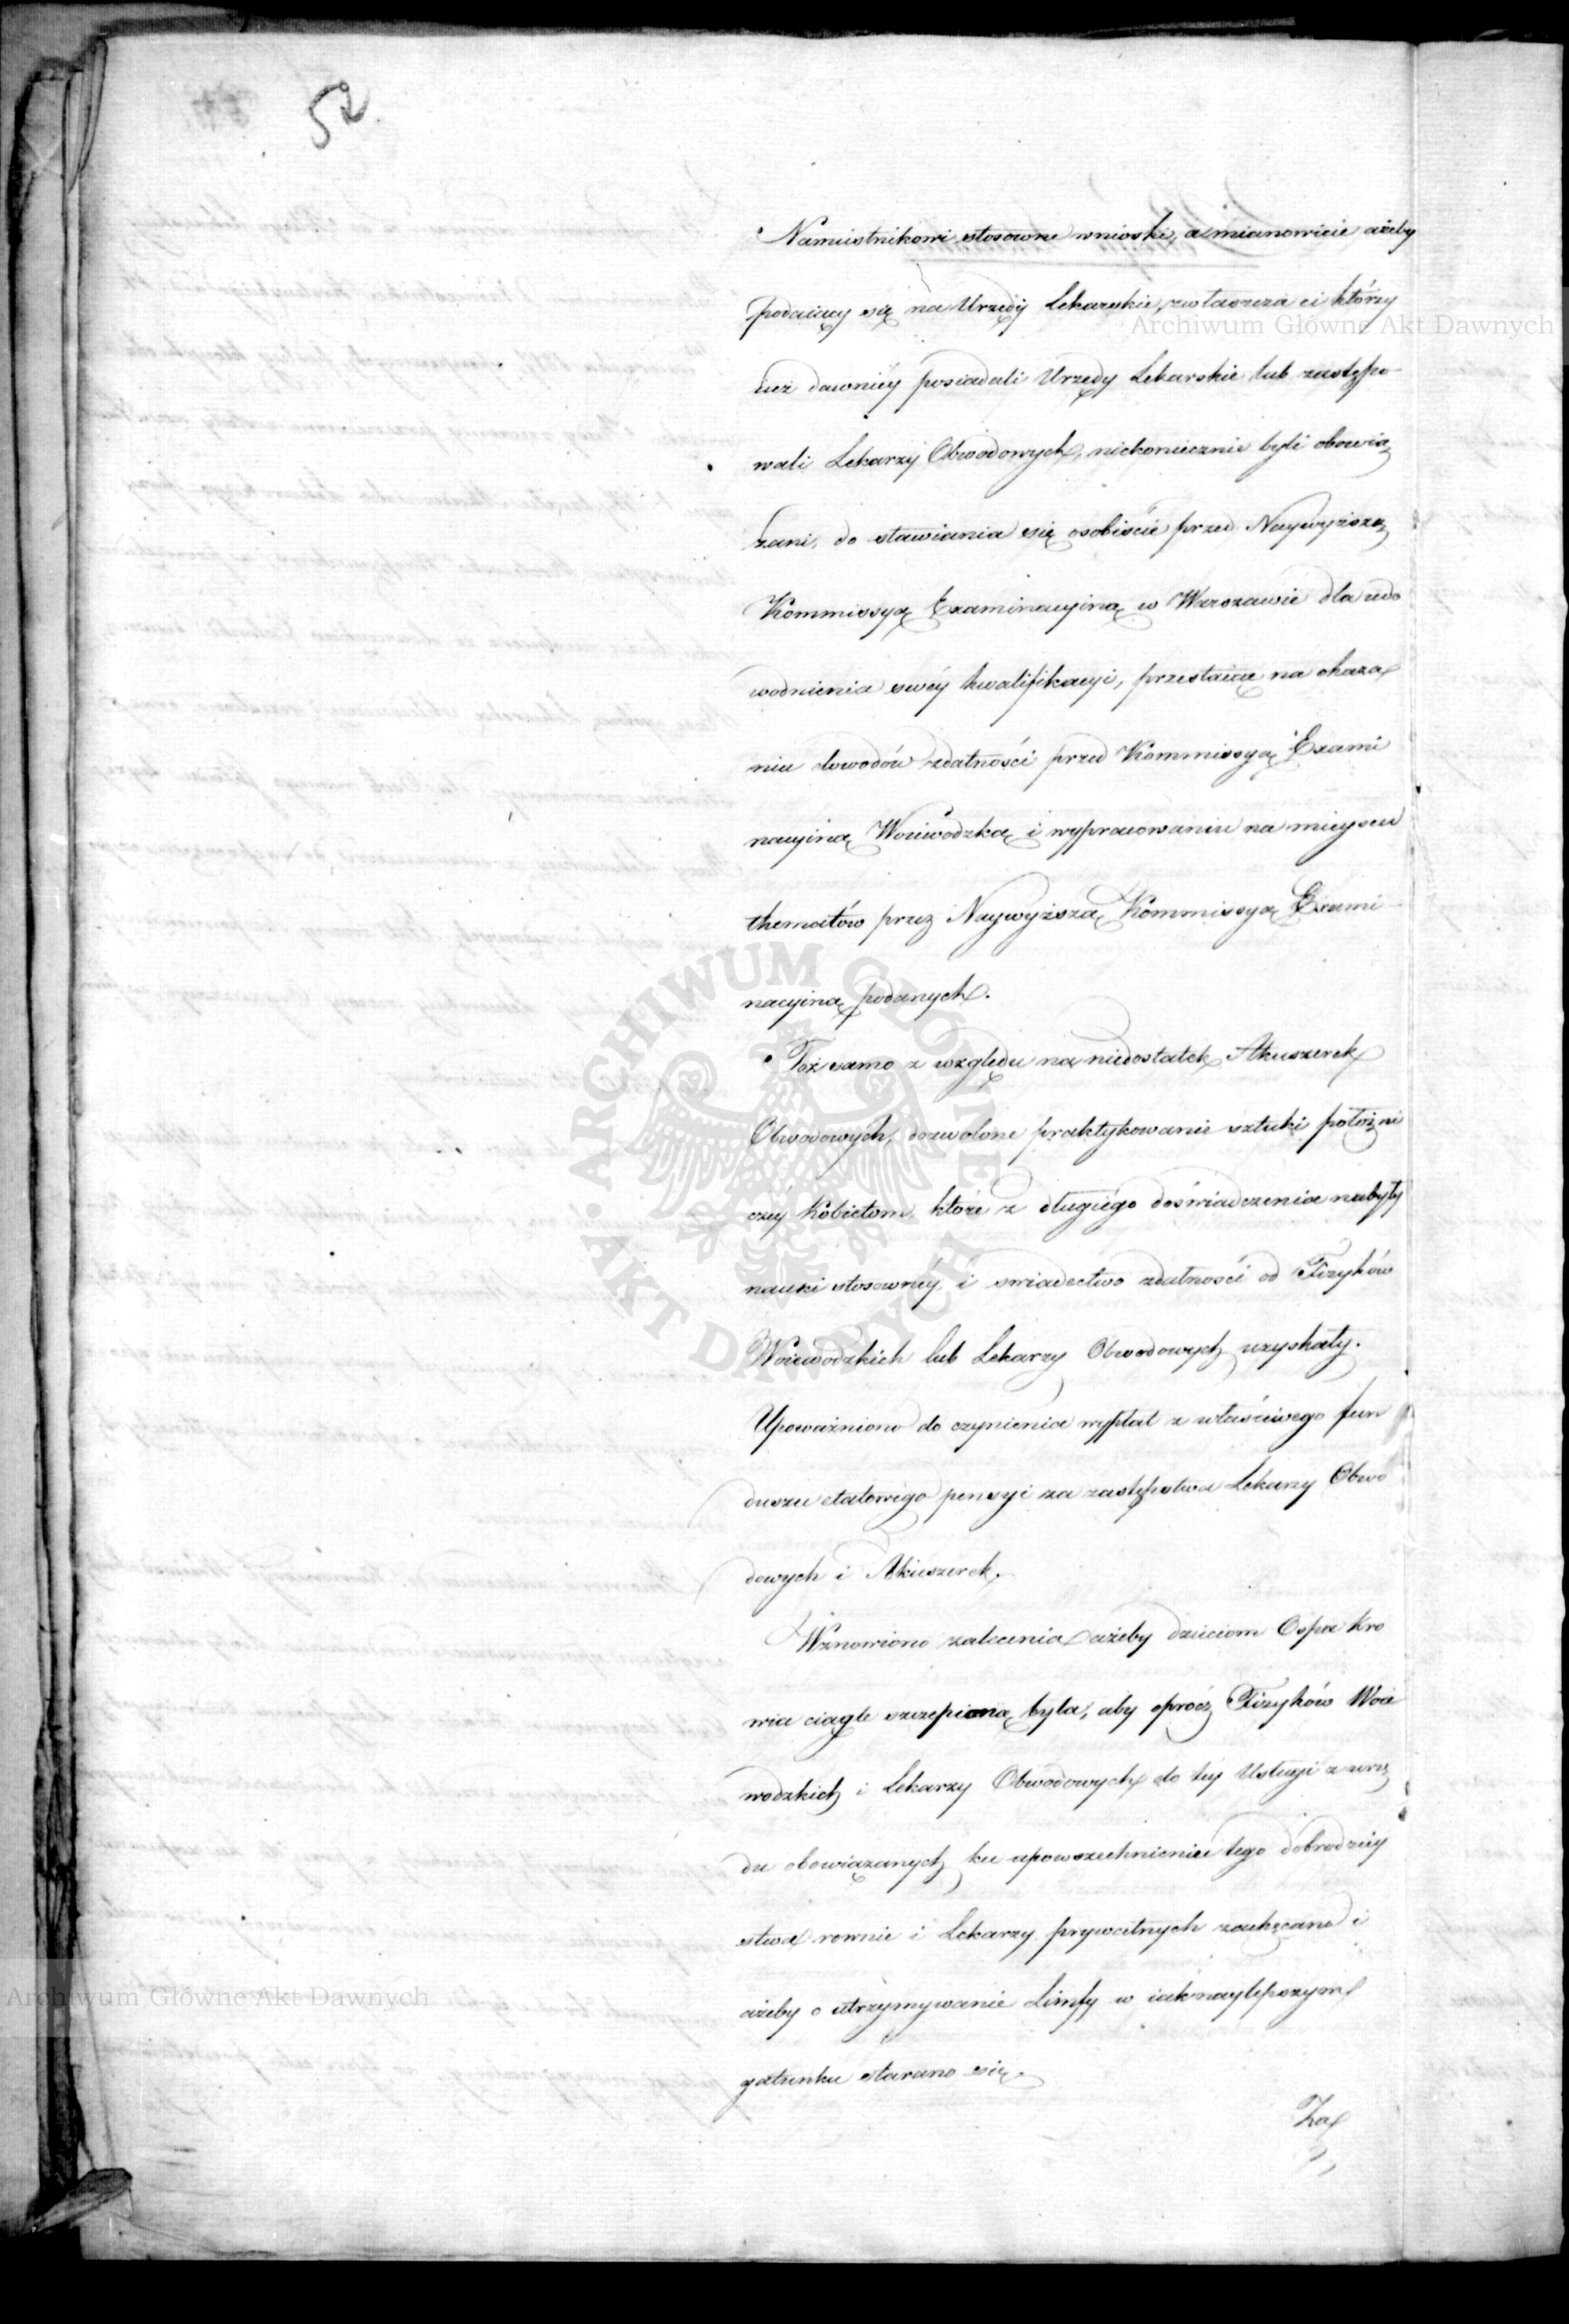 52
Namiestnikowi stosowne wnioski, a mianowicie ażeby
podaiący się na Urzędy Lekarskie, zwłaszcza ci którzy
Archiwum Główne Akt Dawnych
iuż dawniéy posiadali Urzędy Lekarskie lub zastępo-
wali Lekarzy Obwodowych, niekoniecznie byli obowią
zani, do stawiania się osobiście przed Naywyższą
Kommissyą Examinacyiną w Warszawie dla udo
wodnienia swéy kwalifikacyi, przestaiąc na okaza
niu dowodów zdatności przed Kommissyą Exami
nacyiną Woiewodzką i wypracowaniu na mieyscu
thematów przez Naywyższą Kommissyą Exami-
nacyiną podanych.
ARCHIWUM GŁÓWNE AKT DAWNYCH
Toż samo z względu na niedostatek Akuszerek
Obwodowych, dozwolone praktykowanie sztuki położni
czey Kobietom, które z długiégo doświadczenia nabyły
nauki stosownéy i swiadectwo zdatności od Fizyków
Woiewodzkich lub Lekarzy Obwodowych uzyskały.
Upoważniono do czynienia wypłat z właściwego fun
duszu etatowego pensyi za zastępstwa Lekarzy Obwo
dowych i Akuszerek.
Wznowiono zalecenia ażeby dzieciom Ospa Kro
wia ciągle szczepioną była, aby oprócz Fizyków Woie
wodzkich i Lekarzy Obwodowych do téy Usługi z urzę
du obowiązanych ku upowszechnieniu tego dobrodziey
stwa rownie i Lekarzy prywatnych zachęcano i
ażeby o utrzymywanie Limfy w iaknaylepszym
Archiwum Główne Akt Dawnych
gatunku starano się.
Za